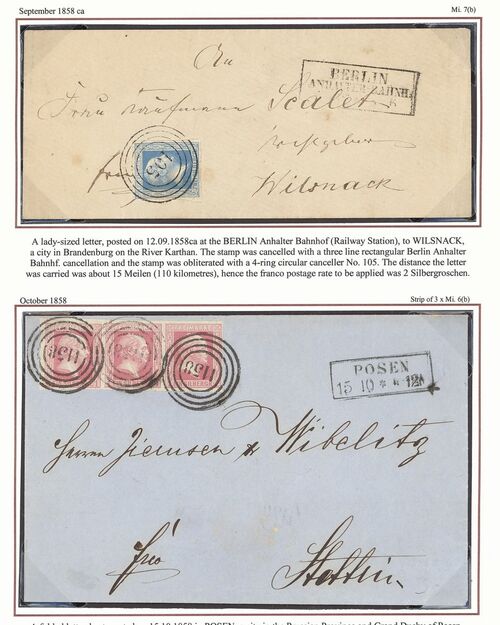 September 1858 ca
Mi. 7(b)
An
BERLIN
ANHALTER BAHNH.
Frau Kaufmann Scalet
Wilsnack
105
A lady-sized letter, posted on 12.09.1858ca at the BERLIN Anhalter Bahnhof (Railway Station), to WILSNACK,
a city in Brandenburg on the River Karthan. The stamp was cancelled with a three line rectangular Berlin Anhalter
Bahnhf. cancellation and the stamp was obliterated with a 4-ring circular canceller No. 105. The distance the letter
was carried was about 15 Meilen (110 kilometres), hence the franco postage rate to be applied was 2 Silbergroschen.
October 1858
Strip of 3 x Mi. 6(b)
1158
1158
1158
POSEN
15 10
Herren & Wibelitz
frco
Stettin